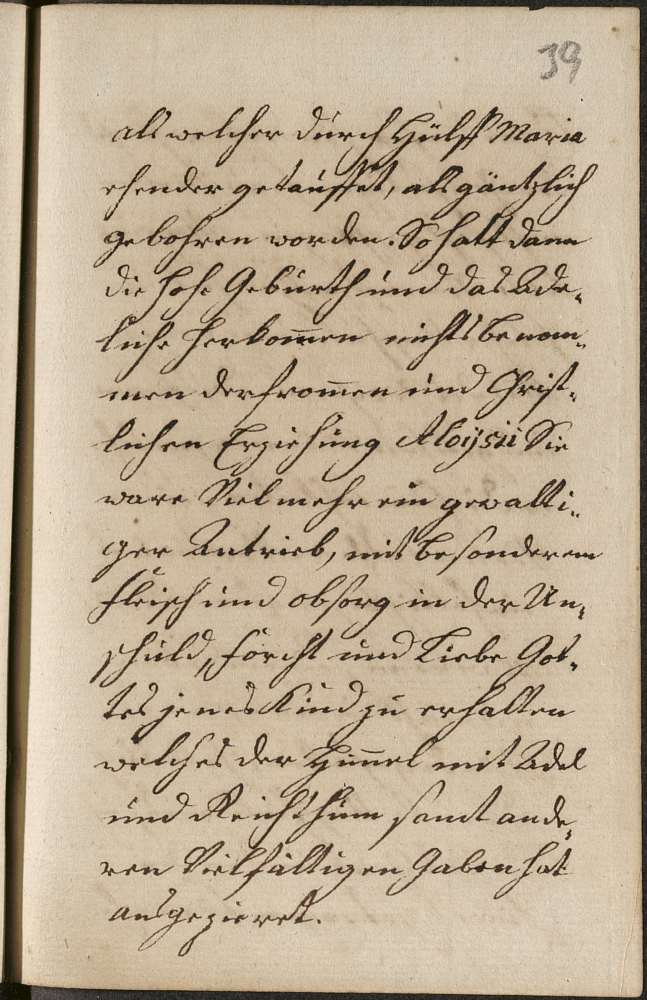 39
als welcher durch Hülff Maria
ehender getauffet, als gäntzlich
gebohren worden. So hatt dann
die hohe Geburth und das Ade=
liche herkom̄en nichts benom=
men der from̄en und Christ=
lichen Erziehung Aloÿsii Sie
ware Vielmehr ein gewalti=
ger Antrieb, mit besonderem
fleisch und obsorg in der Un=
schuld, forcht und Liebe Got=
tes jenes Kind zu erhalten
welches der Him̄el mit Adel
und Reichthum samt ande=
ren Vielfältigen Gaben hat
ausgezieret.